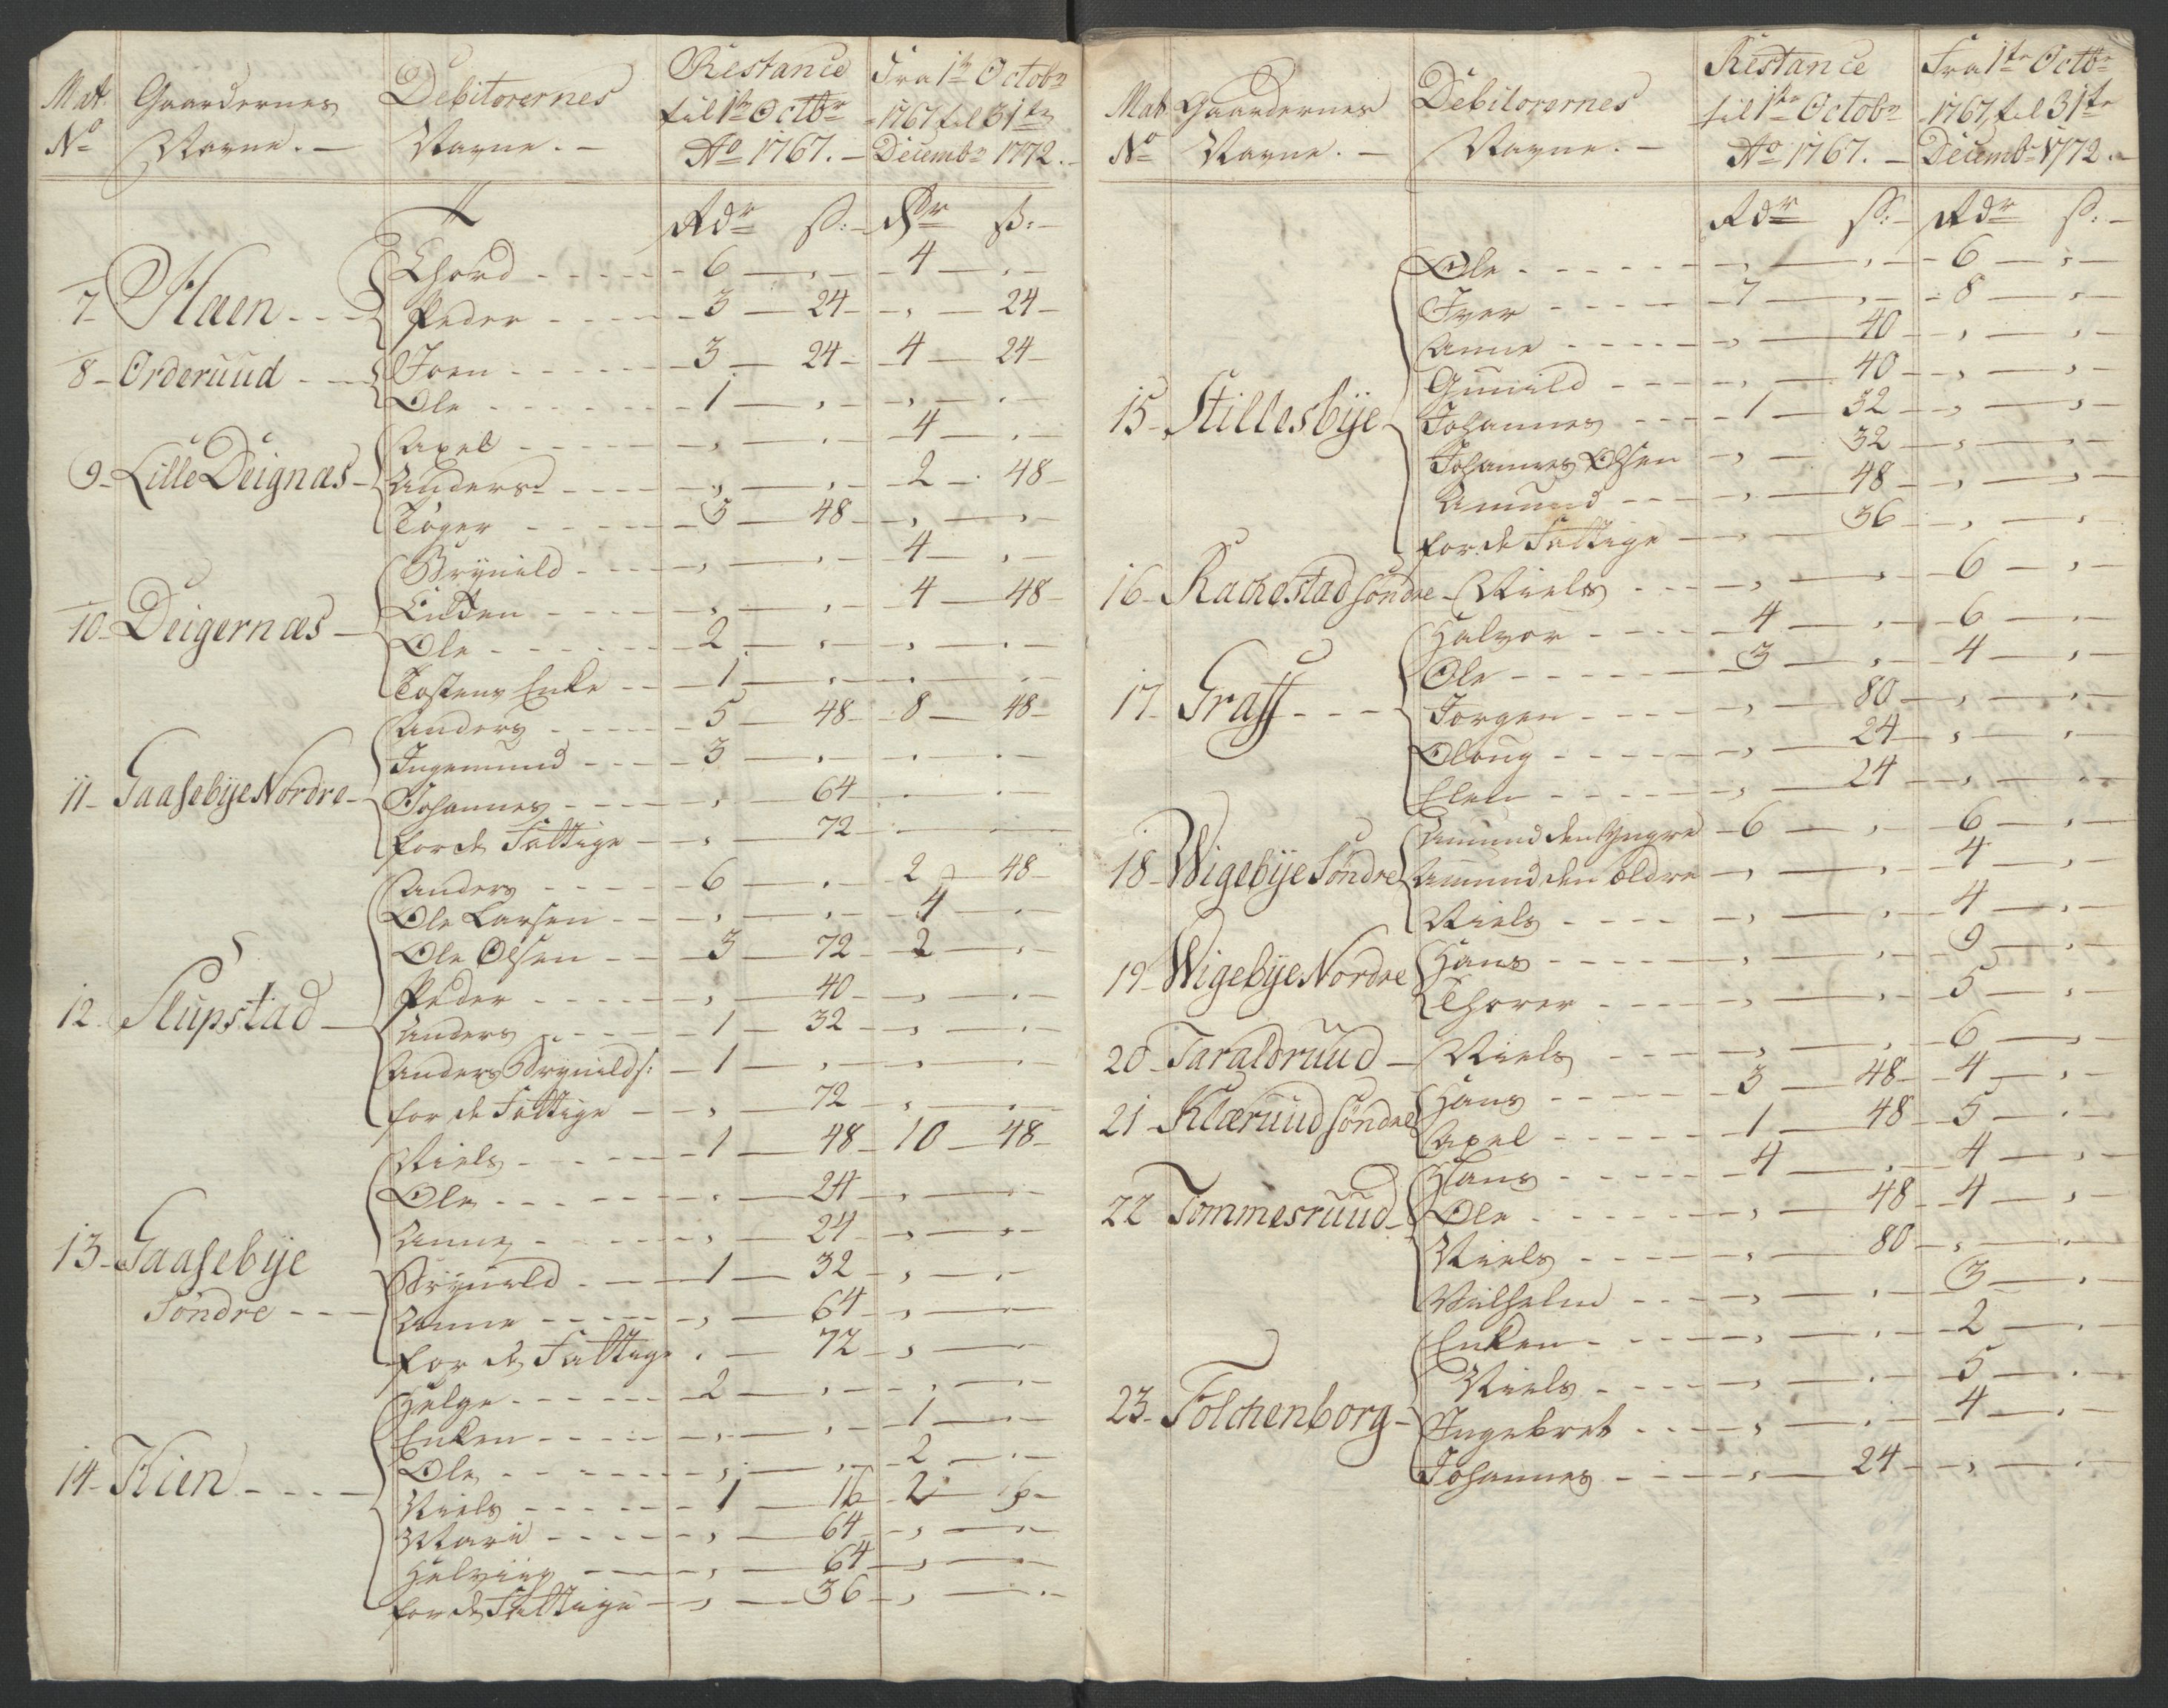 Mat. No | Gaardernes Navne. | Debitorernes Navne. | Restance til 1te Octbr Ao 1767. | Fra 1te Octobr 1767 til 31te Decembr 1772.
Rdr ß: | Rdr ß:
7 Haen | Thord | 6 , | 4 ,
Peder | 3 24 | , 24
8 Orderuud | Joen | 3 24 | 4 24
Ole | 1 , | , ,
9 Lille Deignæs | Axel | , , | 4 ,
Anders | , , | 2 48
Tøger | 3 48 | , ,
10 Deigernæs | Brynild | , , | 4 ,
Enken | , , | 4 48
Ole | 2 , | , ,
Tostens Enke | 1 , | , ,
11 Gaasebye Nordre | Anders | 5 48 | 8 48
Ingemund | 3 , | , ,
Johannes | , 64 | , ,
for de Fattige | , 72 | , ,
12 Slupstad | Anders | 6 , | 2 48
Ole Larsen | , , | 4 ,
Ole Olsen | 3 72 | 2 ,
Peder | , 40 | , ,
Anders | 1 32 | , ,
Anders Brynilds: | 1 , | , ,
for de Fattige | , 72 | , ,
13 Gaasebye Søndre | Niels | 1 48 | 10 48
Ole | , 24 | , ,
Anne | , 24 | , ,
Brynild | 1 32 | , ,
Anne | , 64 | , ,
for de Fattige | , 72 | , ,
14 Kien | Helge | 2 , | , ,
Enken | , , | 1 ,
Ole | , , | 2 ,
Niels | 1 16 | 2
Mari | , 64 | , ,
Helvig | , 64 | , ,
for de Fattige | , 36 | , ,
Mat No | Gaardernes Navne. | Debitorernes Navne. | Restance til 1te Octobr Ao 1767. | Fra 1te Octbr 1767 til 31te Decembr 1772.
Rdr ß: | Rdr ß:
15 Stillesbye | Ole | , , | 6 ,
Iver | 7 , | 8 ,
Anne | , 40 | , ,
Gunild | , 40 | , ,
Johannes | 1 32 | , ,
Johannes Olsen | , 32 | , ,
Amund | , 48 | , ,
for de Fattige | , 36 | , ,
16 Rachestad søndre | Niels | , , | 6 ,
17 Graff | Halvor | 4 , | 6 ,
Ole | 3 , | 4 ,
Jørgen | , 80 | , ,
Oloug | , 24 | , ,
Elen | , 24 | , ,
18 Wigebye Søndre | Amund den Yngre | 6 , | 6 ,
Amund den ældre | , , | 4 ,
Niels | , , | 4 ,
19 Wigebye Nordre | Hans | , , | 9 ,
Thorer | , , | 5 ,
20 Taraldruud | Niels | , , | 6 ,
21 Klæruud søndre | Hans | 3 48 | 4 ,
Axel | 1 48 | 5 ,
22 Tommesruud | Hans | 4 , | 4 ,
Ole | , 48 | 4 ,
Niels | , 80 | , ,
Wilhelm | , , | 3 ,
23 Folchenborg | Enken | , , | 2 ,
Niels | , , | 5 ,
Ingebret | , , | 4 ,
Johannes | , 24 | , ,